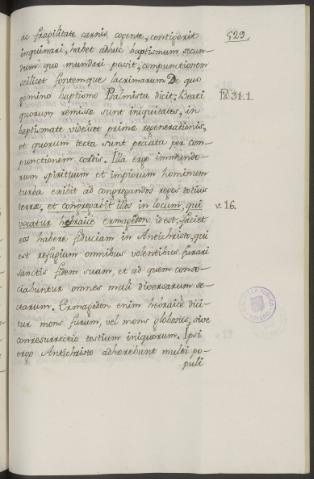 ac fragilitate carnis cogente, contigerit
inquinari, habet adhuc baptismum secun-
dum quo mundari possit, compunctionem
scilicet fontemque lacrimarum De quo
gemino baptismo Psalmista dicit: Beati
quorum remissæ sunt iniquitates, in
baptismate videlicet primæ regenerationis,
et quorum tecta sunt peccata per com-
punctionem cordis. Illa ergo inmundo-
rum spirituum et impiorum hominum
turba exibit ad congregandos reges totius
terræ, et congregabit illos in locum, qui
vocatur hebraice ermagedon, id est, faciet
eos habere fiduciam in Antichristo, qui
est refugium omnibus volentibus furari
sanctis fidem suam, et ad quem conso-
ciabuntur omnes muli diversarum se-
ctarum. Ermagedon enim hebraice dici-
tur mons furum, vel mons globosus, sive
consurrectio testium iniquorum. Ipsi
ergo Antichristo adhærebunt multi po-
puli
523
Ps. 31. 1.
v. 16.